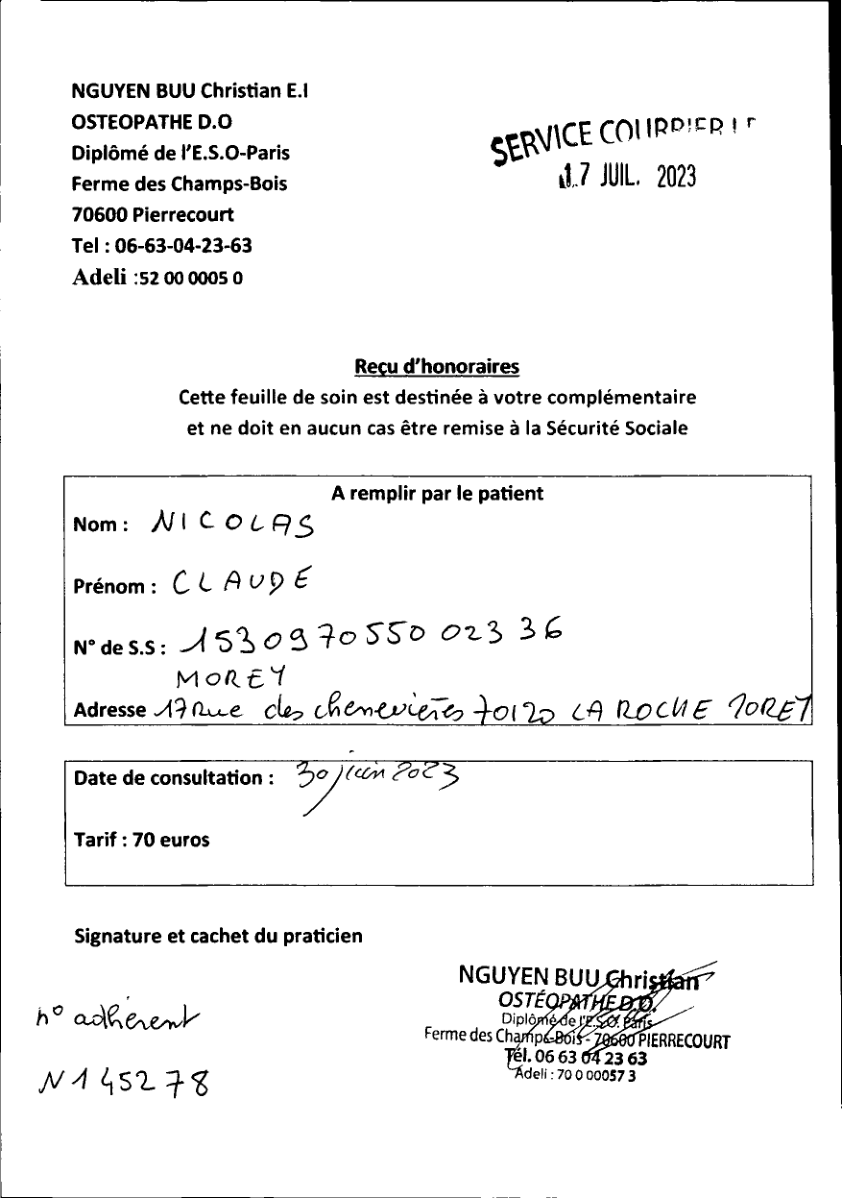 NGUYEN BUU Christian E.I
OSTEOPATHE D.O
Diplômé de l'E.S.O-Paris
Ferme des Champs-Bois
70600 Pierrecourt
Tel : 06-63-04-23-63
Adeli :52 00 0005 0
SERVICE COURRIER LE
17 JUIL. 2023
Reçu d'honoraires
Cette feuille de soin est destinée à votre complémentaire
et ne doit en aucun cas être remise à la Sécurité Sociale
A remplir par le patient
Nom : NICOLAS
Prénom : CLAUDE
N° de S.S : 1530970550 023 36
MOREY
Adresse 17 Rue des chenevières 70120 LA ROCHE MOREY
Date de consultation : 30 juin 2023
Tarif : 70 euros
Signature et cachet du praticien
NGUYEN BUU Christian
OSTÉOPATHE D.O.
Diplômé de l'E.S.O. Paris
Ferme des Champs-Bois - 70600 PIERRECOURT
Tél. 06 63 04 23 63
Adeli : 70 0 00057 3
n° adhérent
N145278